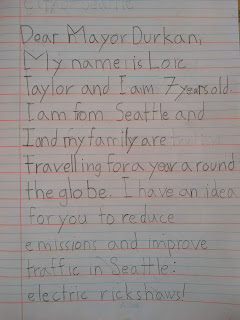 City Seattle
Dear Mayor Durkan,
My name is Loic
Taylor and I am 7 years old.
I am from Seattle and
I and my family are
travelling for a year around
the globe. I have an idea
for you to reduce
emissions and improve
traffic in Seattle:
electric rickshaws!